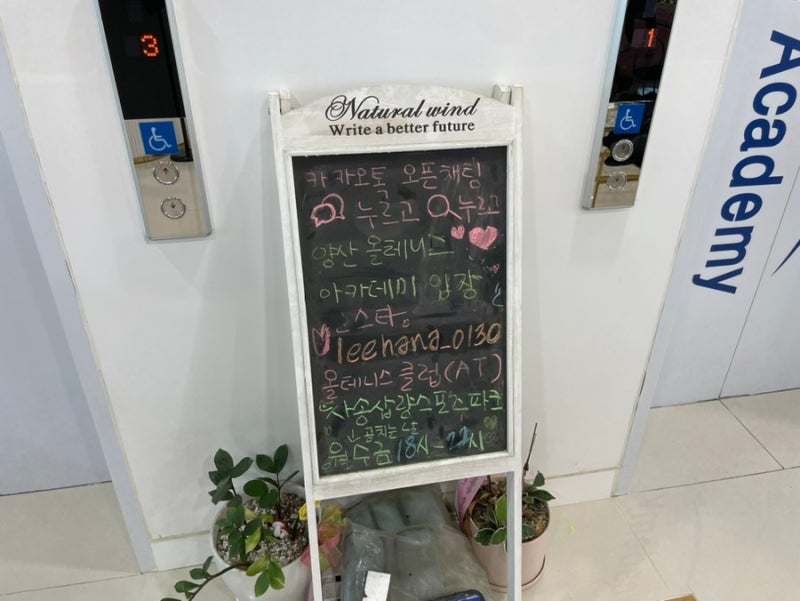 3
1
Academy
Natural wind
Write a better future
카카오톡 오픈채팅
누르고 누르고
양산 올테니스
아카데미 입장
인스타
leehana_0130
올테니스 클럽(AT)
사송삽량스포츠파크
공치는 날
월수금 18시-22시